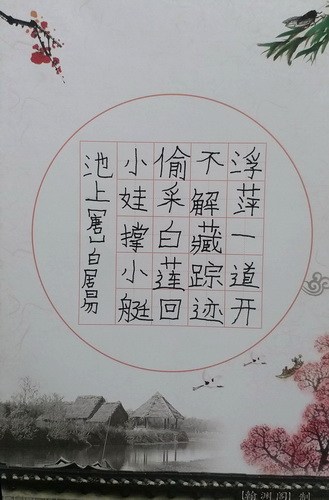 池上【唐】白居易
小娃撑小艇
偷采白莲回
不解藏踪迹
浮萍一道开
[翰洲阁]制